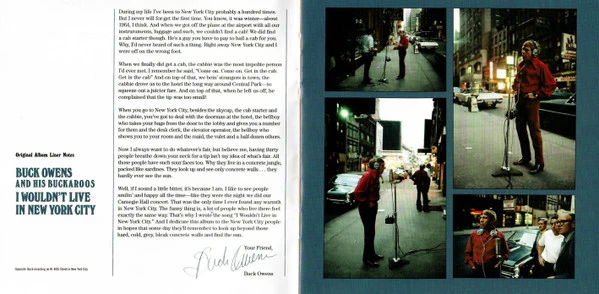 During my life I've been to New York City probably a hundred times.
But I never will forget the first time. You know, it was winter—about
1951, I think. And when we got off the plane at the airport with all our
instruments, luggage and such, we couldn't find a cab! We did find
a cab starter though. He's a guy you have to pay to hail a cab for you.
Why, I'd never heard of such a thing. Right away New York City and I
were off on the wrong foot.
When we finally did get a cab, the cabbie was the most impolite person
I'd ever met. I remember he said, "Come on. Come on. Get in the cab.
Get in the cab!" And on top of that, we bein' strangers in town, the
cabbie drove us to the hotel the long way around Central Park—to
squeeze out a juicier fare. And on top of that, when he left us off, he
complained that the tip was too small!
When you go to New York City, besides the skycap, the cab starter and
the cabbie, you've got to deal with the doorman at the hotel, the bellhop
who takes your bags from the door to the lobby and gives you a number
for them and the desk clerk, the elevator operator, the bellhop who
shows you to your room and the maid, the valet and a half dozen others.
Now I always want to do whatever's fair, but believe me, having thirty
people breathe down your neck for a tip isn't my idea of what's fair. All
those people have such sour faces too. Why they live in a concrete jungle,
packed like sardines. They look up and see only concrete walls . . . they
hardly ever see the sun.
Well, if I sound a little bitter, it's because I am. I like to see people
smilin' and happy all the time—like they were the night we did our
Carnegie Hall concert. That was the only time I ever found any warmth
in New York City. The funny thing is, a lot of people who live there feel
exactly the same way. That's why I wrote the song "I Wouldn't Live in
New York City." And I dedicate this album to the New York City people
in hopes that some day they'll remember to look up beyond those
hard, cold, grey, bleak concrete walls and find the sun.
Your Friend,
Buck Owens
Buck Owens
Original Album Liner Notes
BUCK OWENS
AND HIS BUCKAROOS
I WOULDN'T LIVE
IN NEW YORK CITY